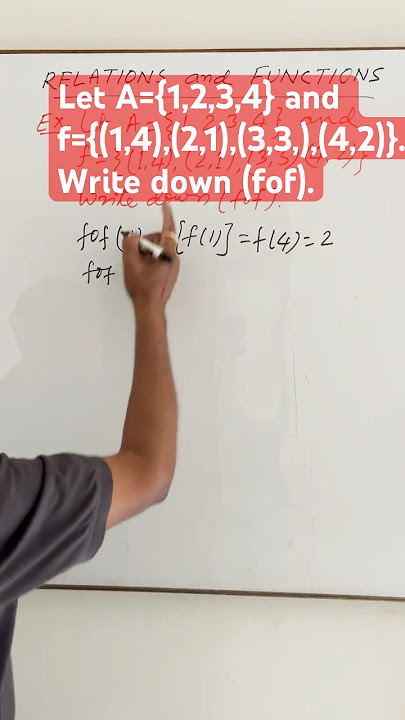 RELATIONS and FUNCTIONS
Let A={1,2,3,4} and
f={(1,4),(2,1),(3,3,),(4,2)}.
Write down (fof).
fof [f(1)] = f(4) = 2
fof